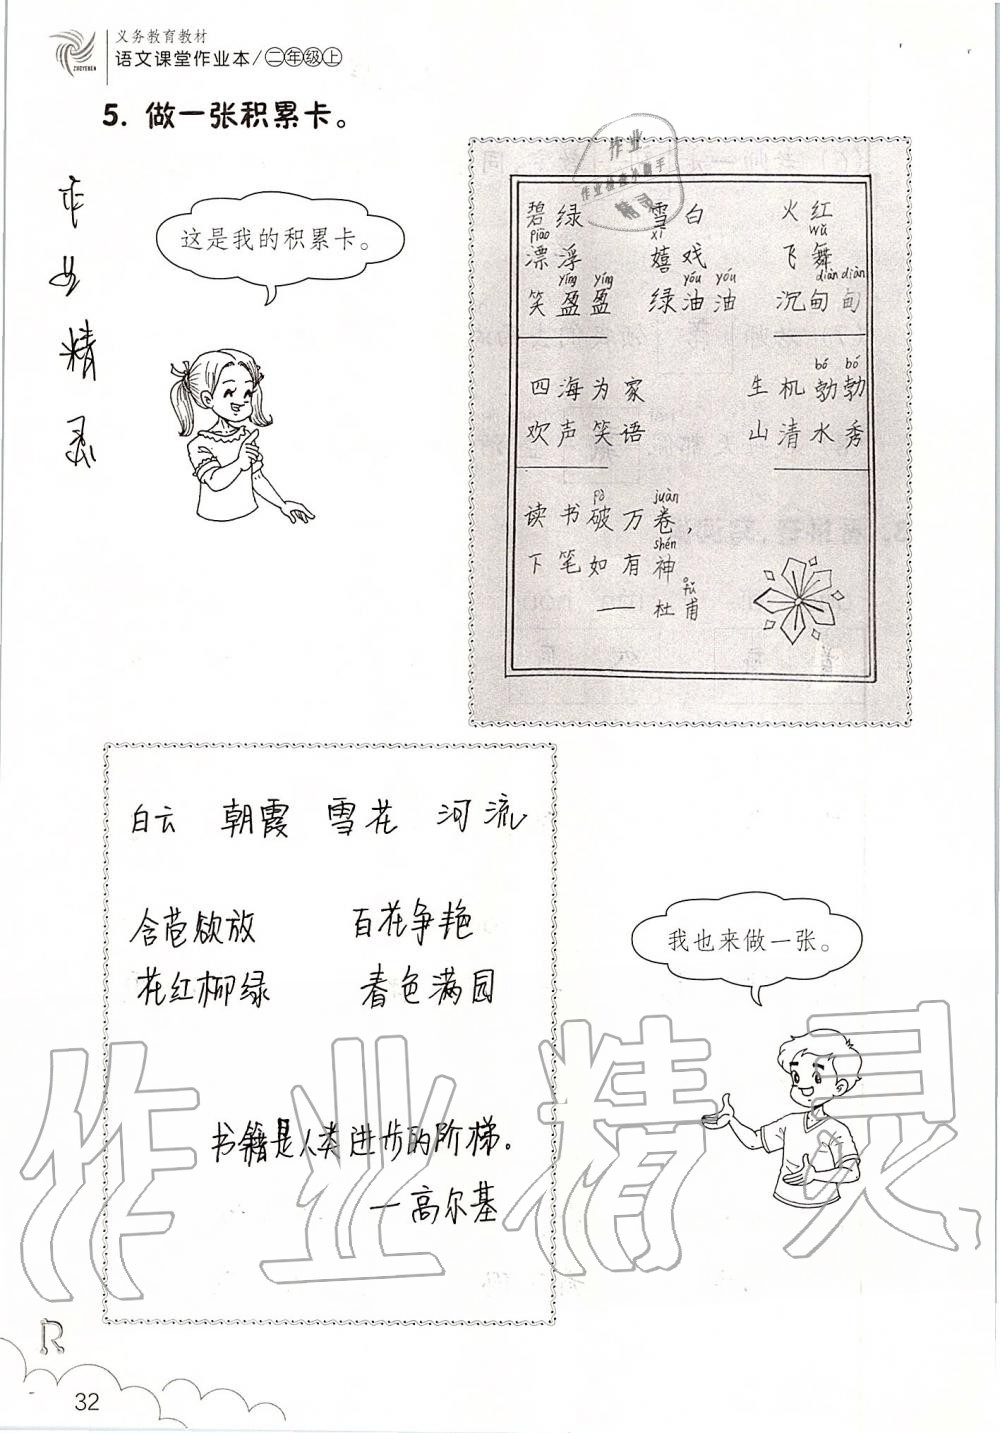 义务教育教材
语文课堂作业本/二年级上
ZUOYEBEN
5. 做一张积累卡。
作业精灵
这是我的积累卡。
作业
作业检查小助手
精灵
碧绿 雪白 火红
piāo xī wǔ
漂浮 嬉戏 飞舞
yíng yíng yóu yóu diàn diàn
笑盈盈 绿油油 沉甸甸
bó bó
四海为家 生机勃勃
欢声笑语 山清水秀
pò juàn
读书破万卷，
shén
下笔如有神
fǔ
——杜甫
白云 朝霞 雪花 河流
含苞欲放 百花争艳
花红柳绿 春色满园
我也来做一张。
书籍是人类进步的阶梯。
—高尔基
作业精灵
R
32